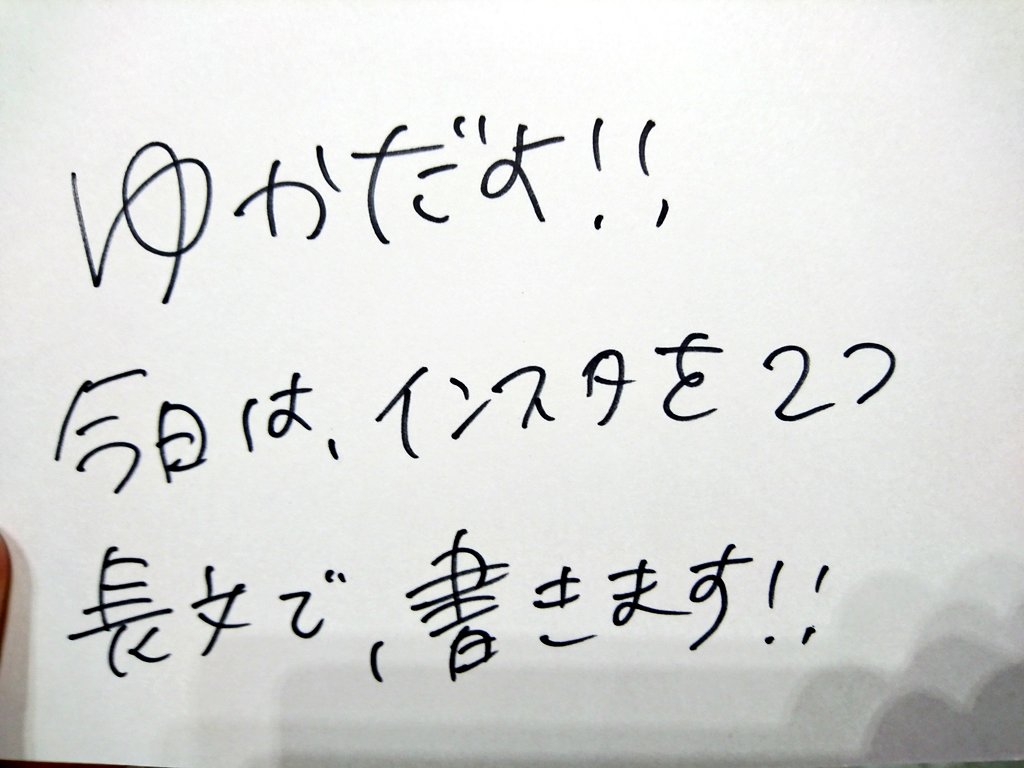 ゆかだよ!!
今日は、インスタを2つ
長文で、書きます!!